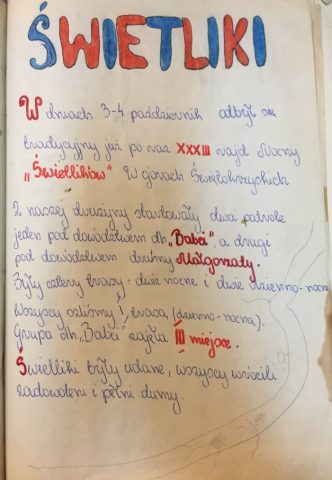 ŚWIETLIKI
W dniach 3-4 październik odbył się
tradycyjny już po raz XXXIII rajd Nocny
„Świetlików" w górach Świętokrzyskich
Z naszej drużyny startowały dwa patrole
jeden pod dowództwem dh. „Babci", a drugi
pod dowództwem druhny Małgorzaty.
Były cztery trasy: dwie nocne i dwie dzienno-nocne
Wszyscy szliśmy I trasą (dzienno-nocną).
Grupa dh. „Babci" zajęła III miejsce.
Świetliki były udane, wszyscy wrócili
zadowoleni i pełni dumy.